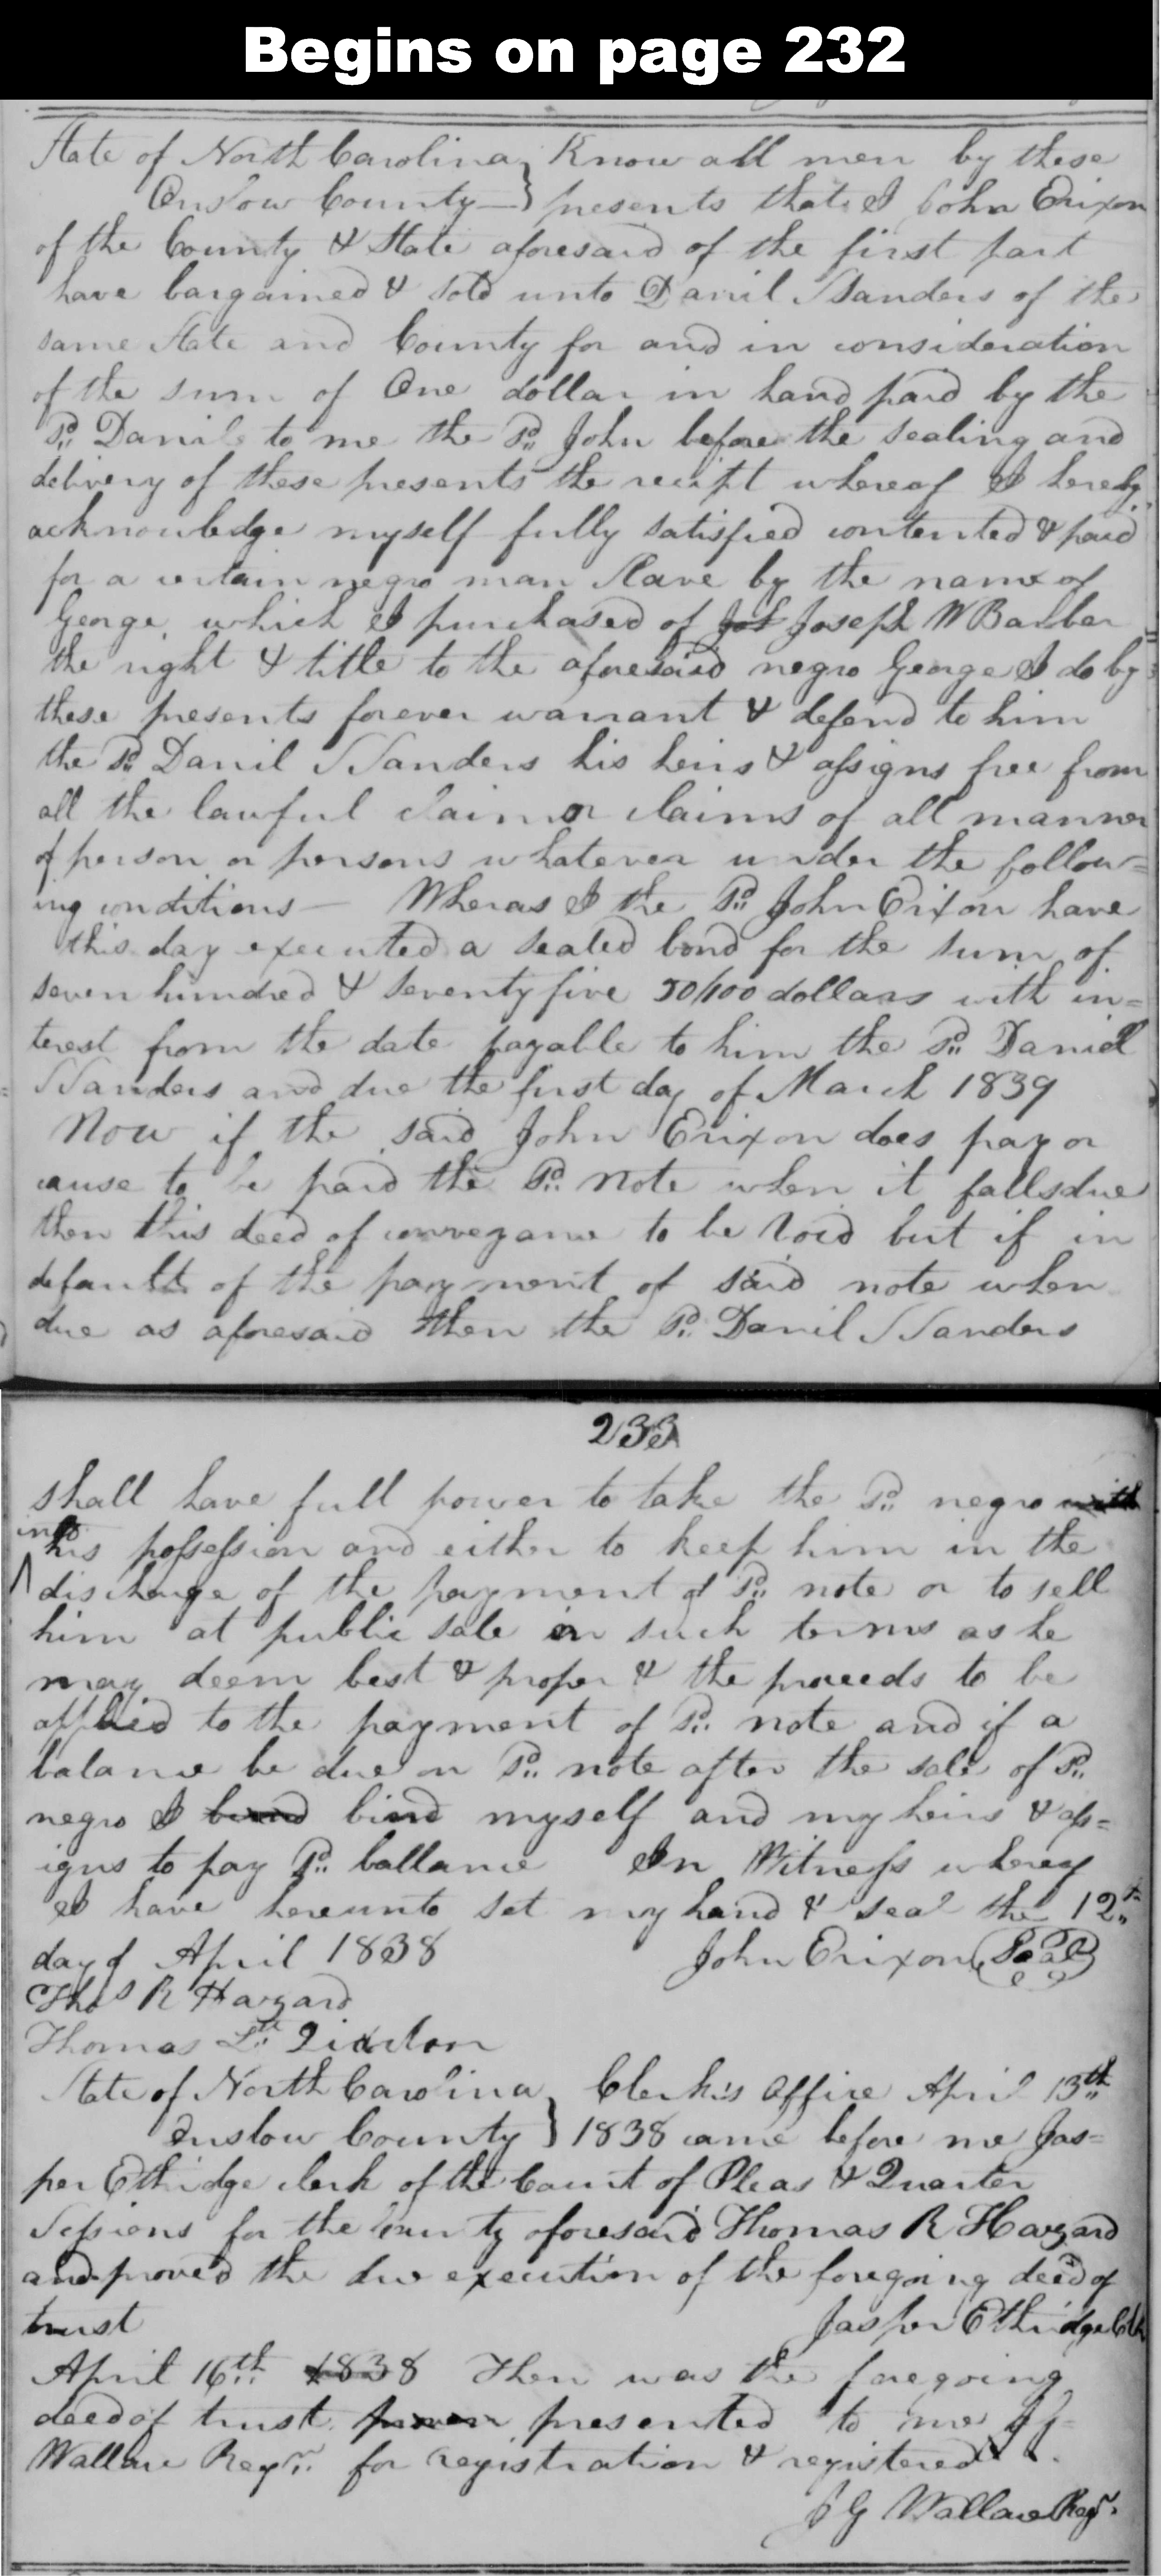 Begins on page 232
State of North Carolina } Know all men by these
Onslow County } presents that I John Erixon
of the County & State aforesaid of the first part
have bargained & sold unto Danil Sanders of the
same State and County for and in consideration
of the sum of One dollar in hand paid by the
sd. Danil to me the sd. John before the sealing and
delivery of these presents the receipt whereof I hereby
acknowledge myself fully satisfied contented & paid
for a certain negro man Slave by the name of
George, which I purchased of Jos Joseph W Barber
the right & title to the aforesaid negro George I do by
these presents forever warrant & defend to him
the sd. Danil Sanders his heirs & assigns free from
all the lawful claim or claims of all manner
of person or persons whatever under the follow=
ing conditions — Wheras I the sd. John Erixon have
this day executed a sealed bond for the sum of
seven hundred & seventy five 50/100 dollars with in=
terest from the date payable to him the sd. Daniel
Sanders and due the first day of March 1839
Now if the said John Erixon does pay or
cause to be paid the sd. note when it falls due
then this deed of conveyance to be void but if in
default of the payment of said note when
due as aforesaid then the sd. Danil Sanders
233
shall have full power to take the sd. negro with
into his possession and either to keep him in the
discharge of the payment of sd. note or to sell
him at public sale on such terms as he
may deem best & proper & the proceeds to be
applied to the payment of sd. note and if a
balance be due on sd. note after the sale of sd.
negro I bind bind myself and my heirs & ass=
igns to pay sd. ballance In Witness whereof
I have hereunto set my hand & seal the 12th
day of April 1838 John Erixon (Seal)
Thos R Hazard
Thomas
State of North Carolina } Clerks Office April 13th
Onslow County } 1838 came before me Jas=
per Ethridge clerk of the Court of Pleas & Quarter
Sessions for the County aforesaid Thomas R Hazard
and proved the due execution of the foregoing deed of
trust Jasper Ethridge Clk
April 16th 1838 Then was the foregoing
deed of trust proven presented to me J G
Wallace Regr. for registration & registered
J G Wallace Regr.